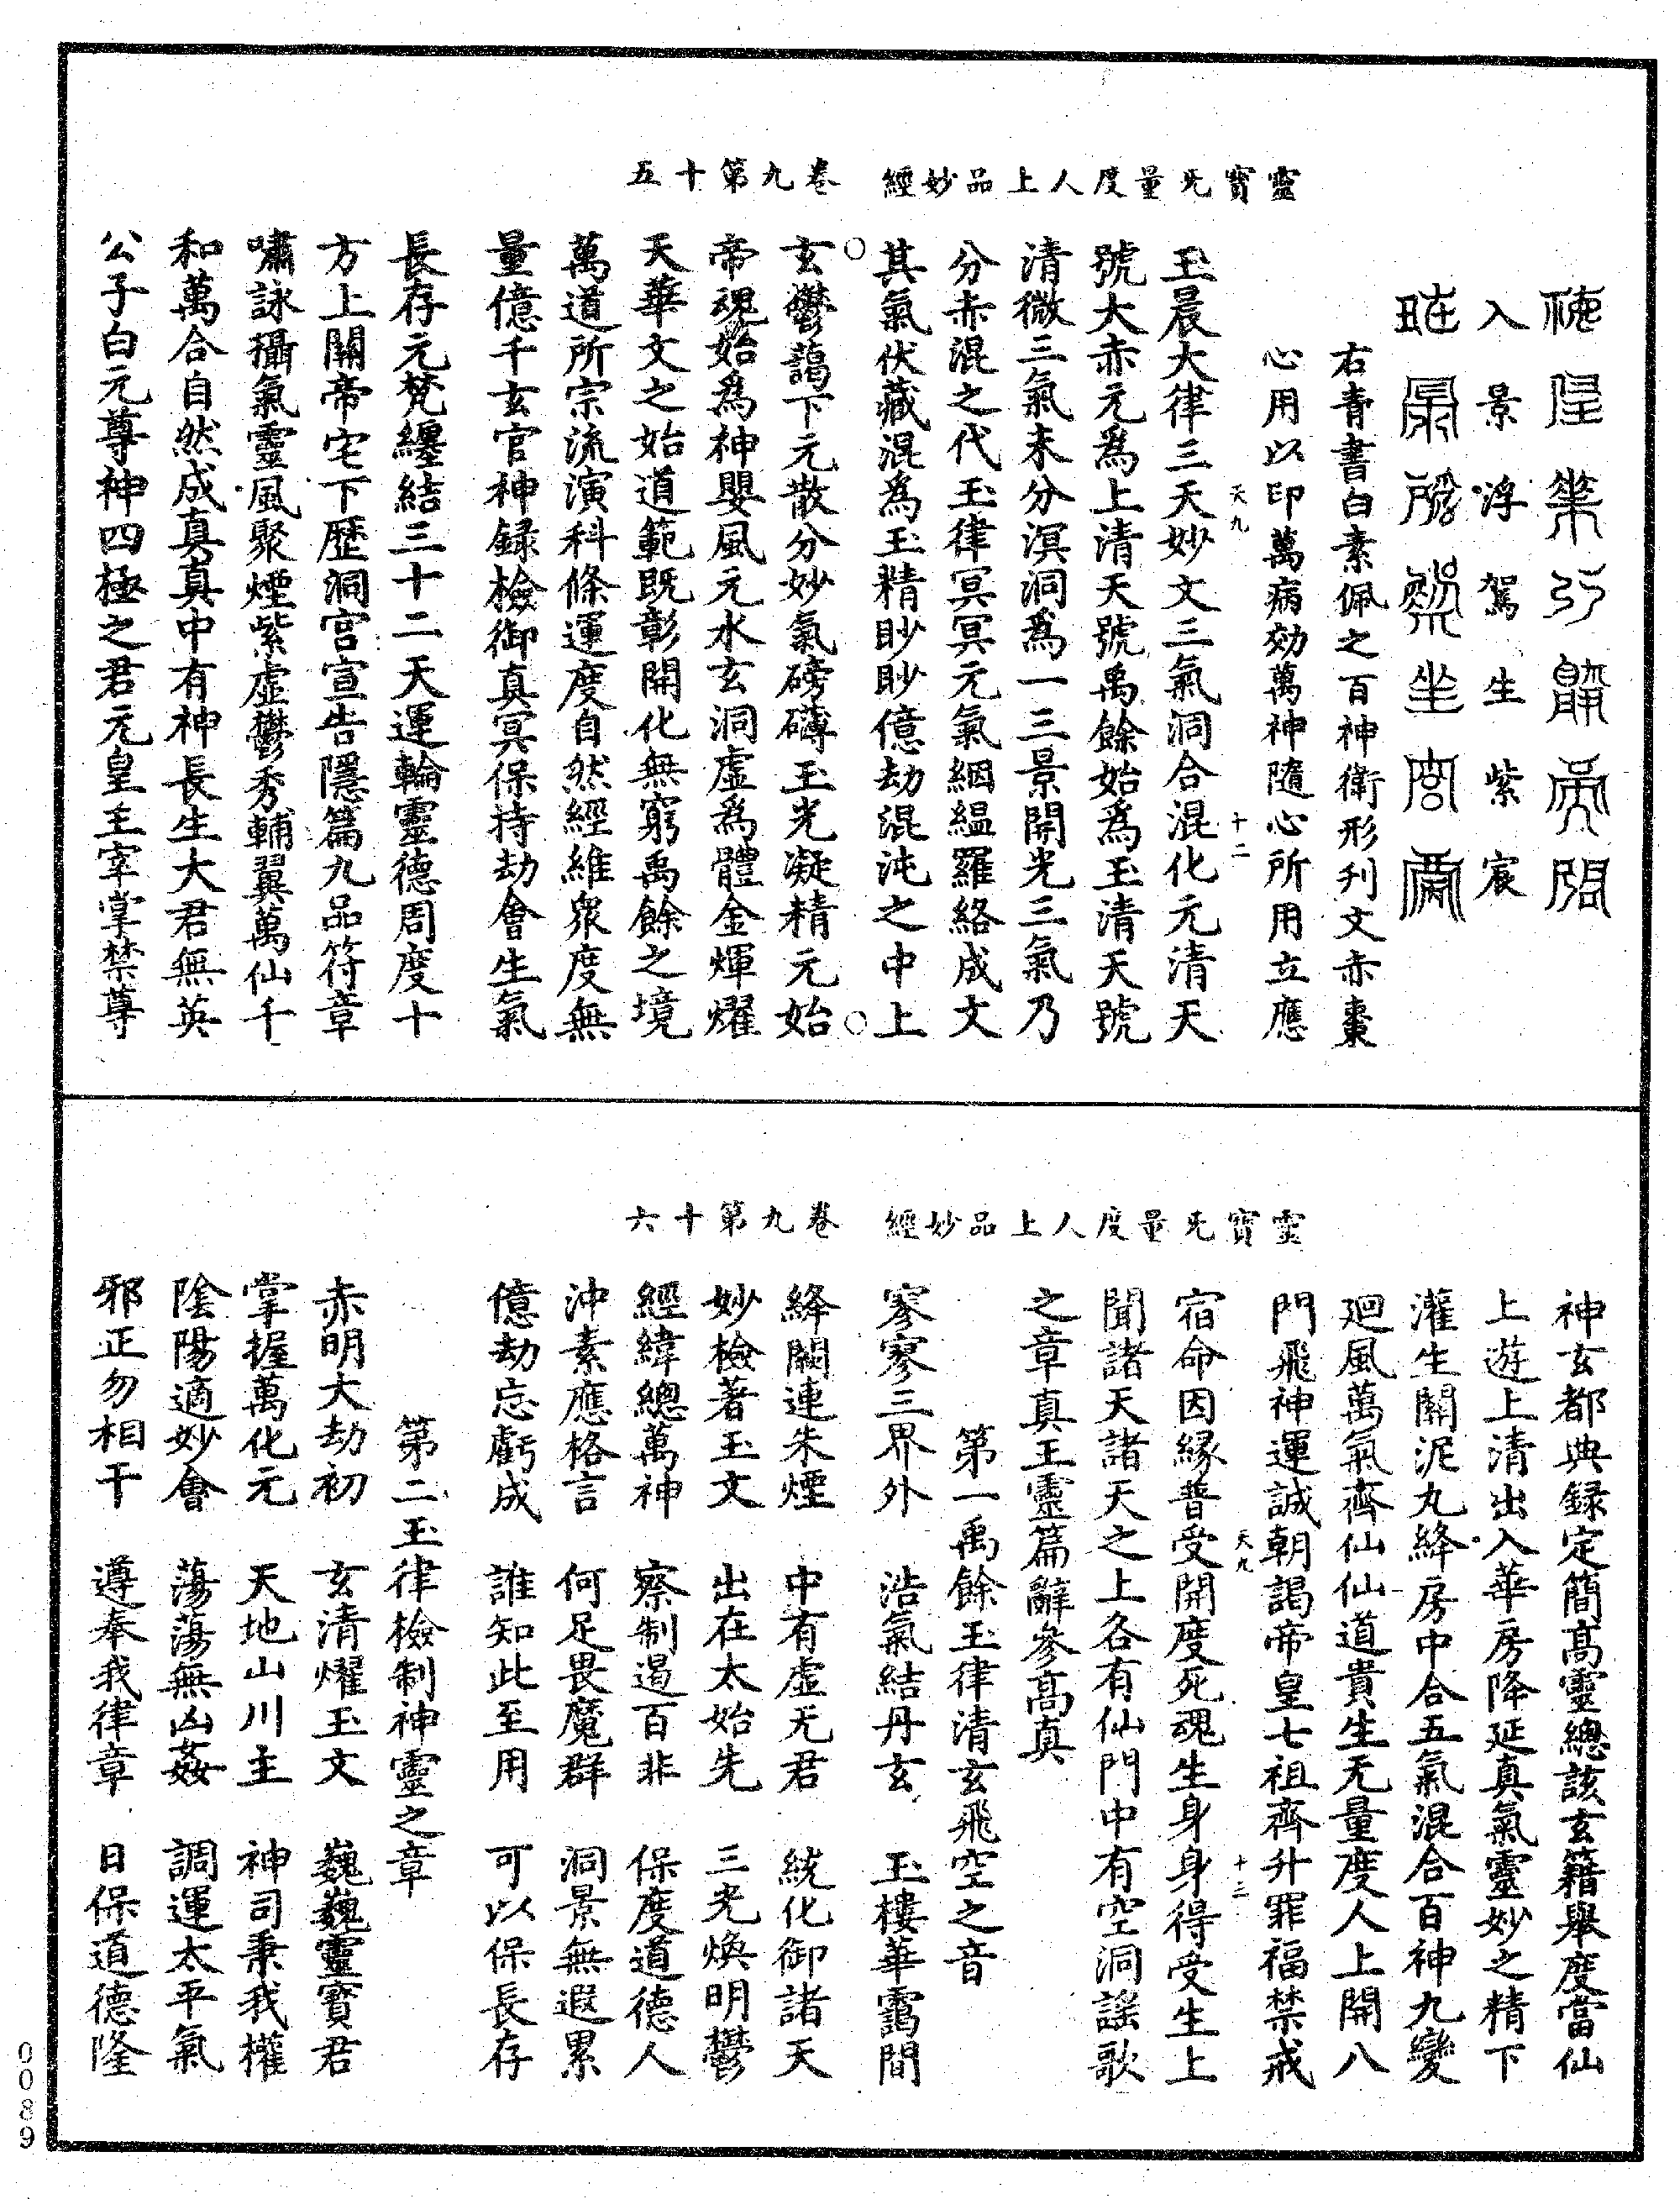 靈寶无量度人上品妙經
卷九第十五
入景浮駕生紫宸
右青書白素佩之百神衛形刋文赤棗
心用以印萬病効萬神隨心所用立應
天九
十二
玉晨大律三天妙文三氣洞合混化元清天
號大赤元爲上清天號禹餘始爲玉清天號
清微三氣未分溟洞爲一三景開光三氣乃
分赤混之代玉律冥冥元氣絪緼羅絡成文
其氣伏藏混爲玉精眇眇億劫混沌之中上
玄鬱藹下元散分妙氣磅礴玉光凝精元始
帝魂始爲神嬰風元水玄洞虛爲體金煇耀
天華文之始道範旣彰開化無窮禹餘之境
萬道所宗流演科條運度自然經維衆度無
量億千玄官神録檢御真冥保持劫會生氣
長存元梵纏結三十二天運輪靈德周度十
方上關帝宅下歷洞宮宣告隱篇九品符章
嘯詠攝氣靈風聚煙紫虛鬱秀輔翼萬仙千
和萬合自然成真真中有神長生大君無英
公子白元尊神四極之君元皇主宰掌禁尊
靈寶无量度人上品妙經
卷九第十六
神玄都典録定簡高靈總該玄籍舉度當仙
上遊上清出入華房降延真氣靈妙之精下
灌生關泥丸絳房中合五氣混合百神九變
廻風萬氣齊仙仙道貴生无量度人上開八
門飛神運誠朝謁帝皇七祖齊升罪福禁戒
天九
十三
宿命因緣普受開度死魂生身身得受生上
聞諸天諸天之上各有仙門中有空洞謠歌
之章真王靈篇辭參高真
第一禹餘玉律清玄飛空之音
寥寥三界外　浩氣結丹玄　玉樓華靄間
絳闕連朱煙　中有虛无君　統化御諸天
妙檢著玉文　出在太始先　三光煥明鬱
經緯總萬神　察制遏百非　保度道德人
沖素應格言　何足畏魔群　洞景無遐累
億劫忘虧成　誰知此至用　可以保長存
第二玉律檢制神靈之章
赤明大劫初　玄清耀玉文　巍巍靈寶君
掌握萬化元　天地山川主　神司秉我權
陰陽適妙會　蕩蕩無凶姦　調運太平氣
邪正勿相干　遵奉我律章　日保道德隆
0089